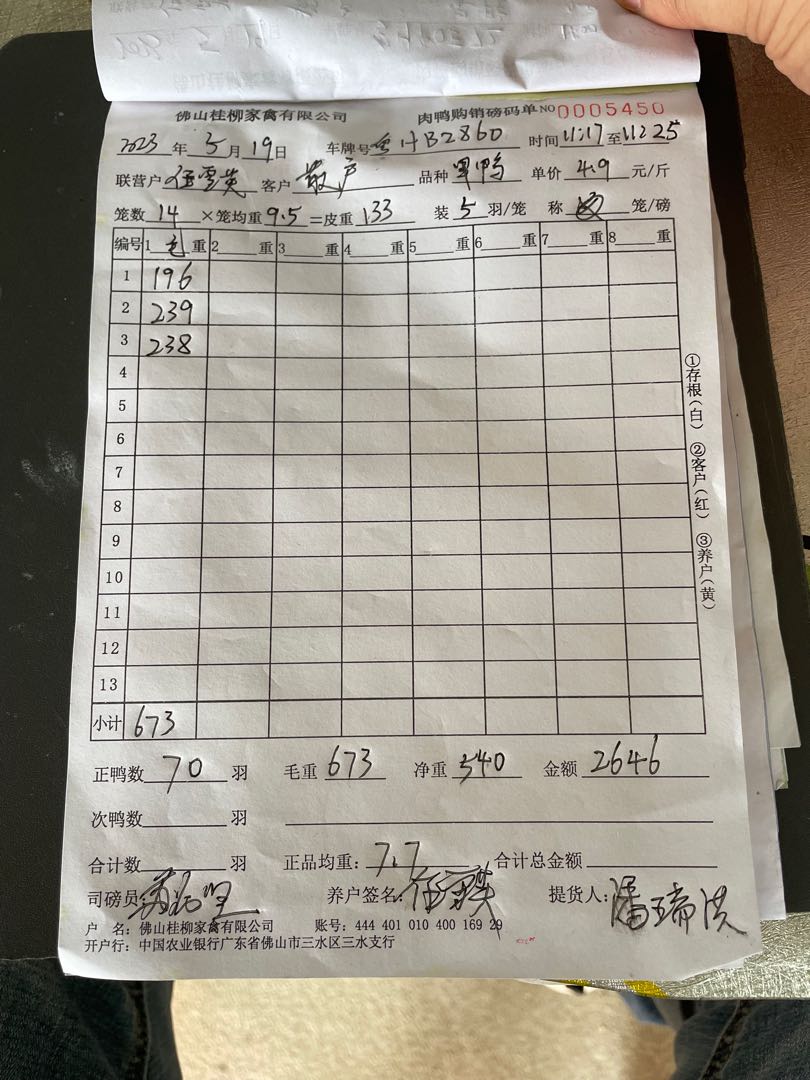 佛山桂柳家禽有限公司 肉鸭购销磅码单 NO 0005450
2023 年 5 月 19 日 车牌号 HB2860 时间 11:17 至 11:25
联营户 客户 散户 品种 鸭 单价 4.9 元/斤
笼数 14 ×笼均重 9.5 =皮重 133 装 5 羽/笼 称 笼/磅
编号 1 毛 重 2 重 3 重 4 重 5 重 6 重 7 重 8 重
1 196
2 239
3 238
4
5
6
7
8
9
10
11
12
13
小计 673
①存根(白) ②客户(红) ③养户(黄)
正鸭数 70 羽 毛重 673 净重 540 金额 2646
次鸭数 羽
合计数 羽 正品均重: 7.7 合计总金额
司磅员: 养户签名: 提货人: 潘瑞洪
户 名: 佛山桂柳家禽有限公司 账号: 444 401 010 400 169 29
开户行: 中国农业银行广东省佛山市三水区三水支行